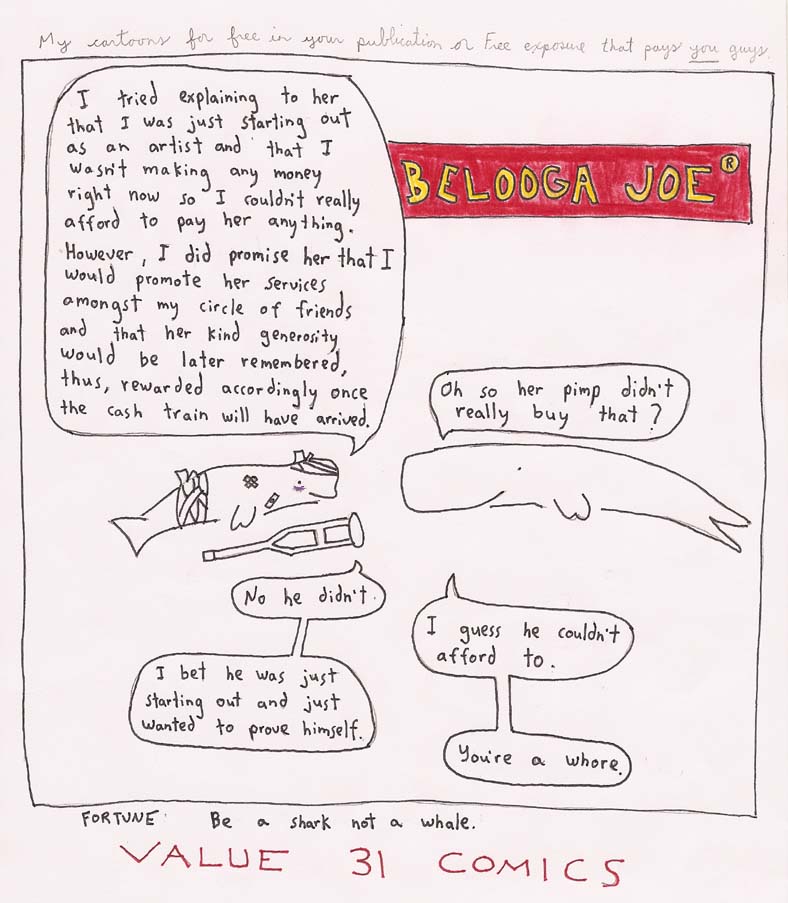 My cartoons for free in your publication or Free exposure that pays you guys.
I tried explaining to her
that I was just starting out
as an artist and that I
wasn't making any money
right now so I couldn't really
afford to pay her anything.
However, I did promise her that I
would promote her services
amongst my circle of friends
and that her kind generosity
would be later remembered,
thus, rewarded accordingly once
the cash train will have arrived.
BELOOGA JOE®
Oh so her pimp didn't
really buy that?
No he didn't.
I bet he was just
starting out and just
wanted to prove himself.
I guess he couldn't
afford to.
You're a whore.
FORTUNE: Be a shark not a whale.
VALUE 31 COMICS